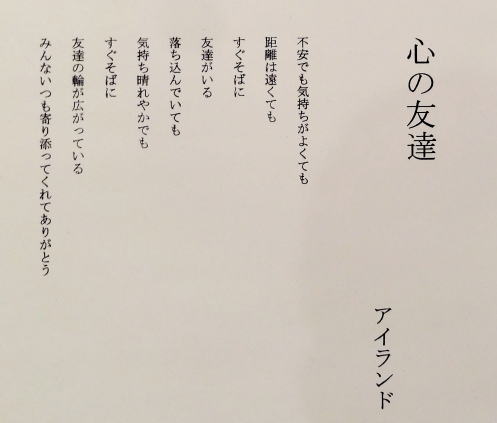 心の友達
アイランド
不安でも気持ちがよくても
距離は遠くても
すぐそばに
友達がいる
落ち込んでいても
気持ち晴れやかでも
すぐそばに
友達の輪が広がっている
みんないつも寄り添ってくれてありがとう